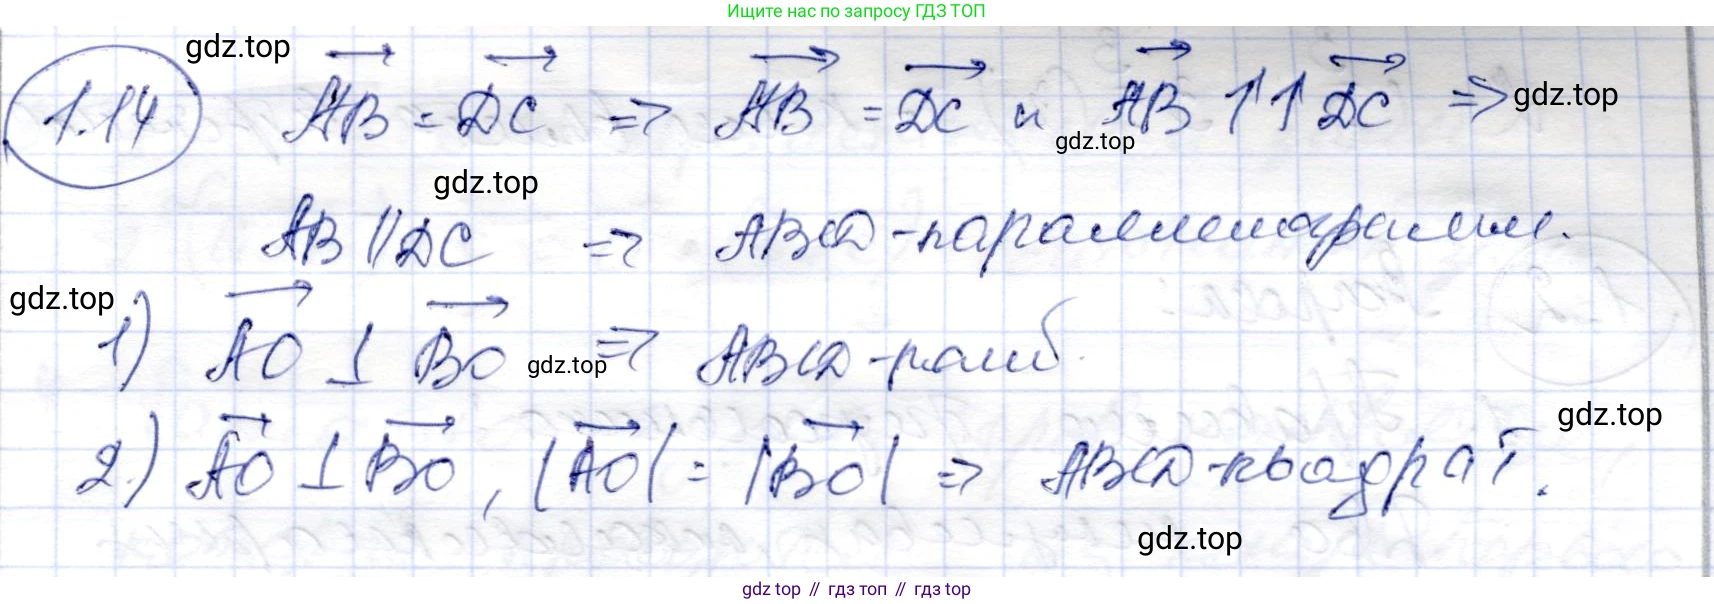 Ищите нас по запросу ГДЗ ТОП
gdz.top
1.14 AB = DC => AB = DC и AB ↑↑ DC => gdz.top
gdz.top
gdz.top
AB || DC => ABCD - параллелограмм.
gdz.top
1) AO ⊥ BO gdz.top => ABCD - ромб.
gdz.top
2) AO ⊥ BO, |AO| = |BO| => ABCD - квадрат.
gdz.top
gdz top // гдз топ // gdz top